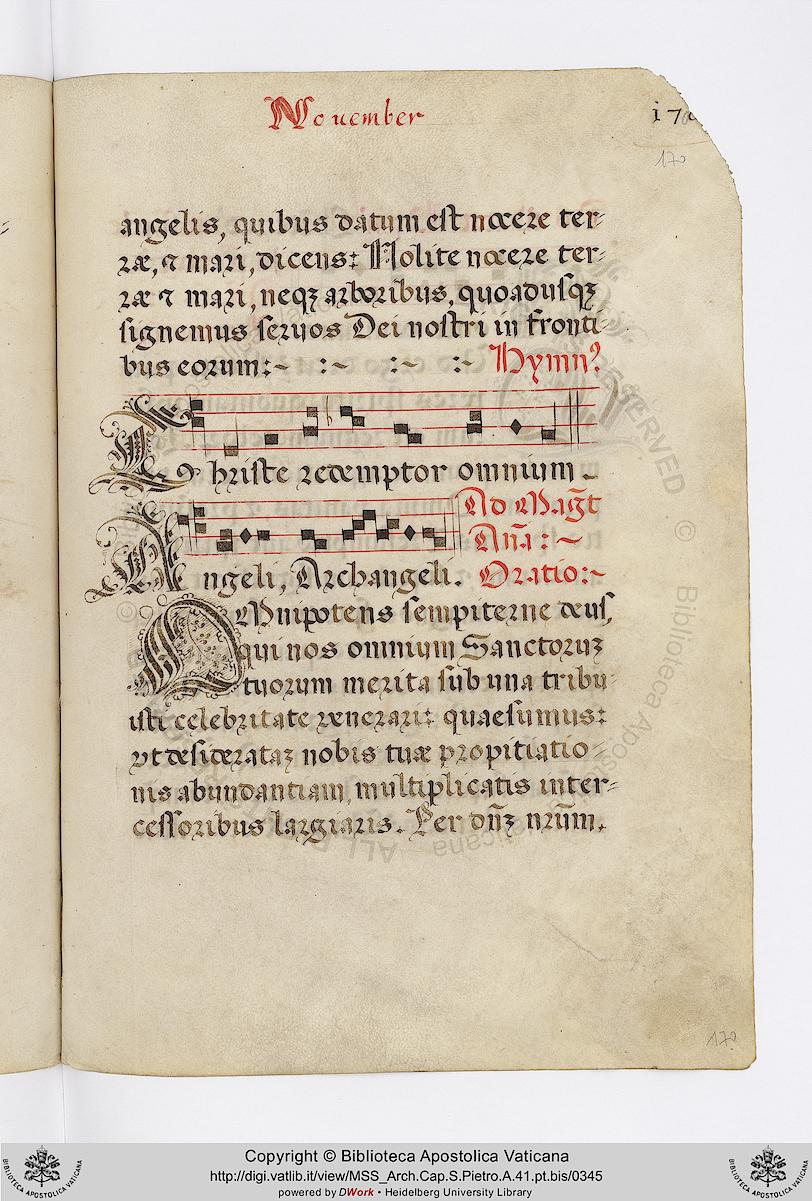 November
170
170
angelis, quibus datum est nocere ter-
ræ, ⁊ mari, dicens: Nolite nocere ter-
ræ ⁊ mari, neqꝫ arboribus, quoadusqꝫ
signemus seruos Dei nostri in fronti-
bus eorum:~ :~ :~ :~ Hymnꝰ
Christe redemptor omnium.
Ad Mag̃t
Añа:~
Angeli, Archangeli. Oratio:~
OMnipotens sempiterne deus,
qui nos omnium Sanctoruꝫ
tuorum merita sub una tribu-
isti celebritate venerari: quaesumus:
vt desiderataꝫ nobis tuæ propitiatio-
nis abundantiam, multiplicatis inter-
cessoribus largiaris. Per dñꝫ nr̃um.
170
Copyright © Biblioteca Apostolica Vaticana
http://digi.vatlib.it/view/MSS_Arch.Cap.S.Pietro.A.41.pt.bis/0345
powered by DWork • Heidelberg University Library
BIBLIOTECA APOSTOLICA VATICANA
BIBLIOTECA APOSTOLICA VATICANA